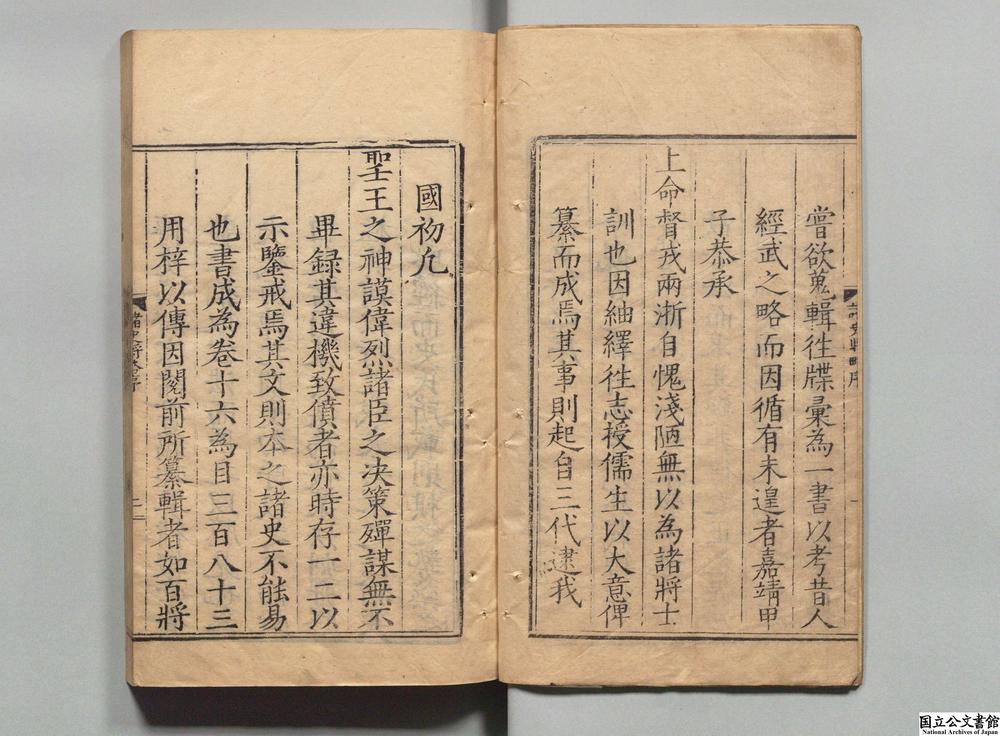 嘗欲蒐輯徃牒彙為一書以考昔人
經武之略而因循有未遑者嘉靖甲
子恭承
上命督戎兩浙自愧淺陋無以為諸將士
訓也因紬繹徃志授儒生以大意俾
纂而成焉其事則起自三代逮我
諸史將略序
國初凢
聖王之神謨偉烈諸臣之决策殫謀無不
畢録其違機致僨者亦時存一二以
示鑒戒焉其文則本之諸史不能易
也書成為卷十六為目三百八十三
用梓以傳因閱前所纂輯者如百將
諸史將略序
二
国立公文書館
National Archives of Japan